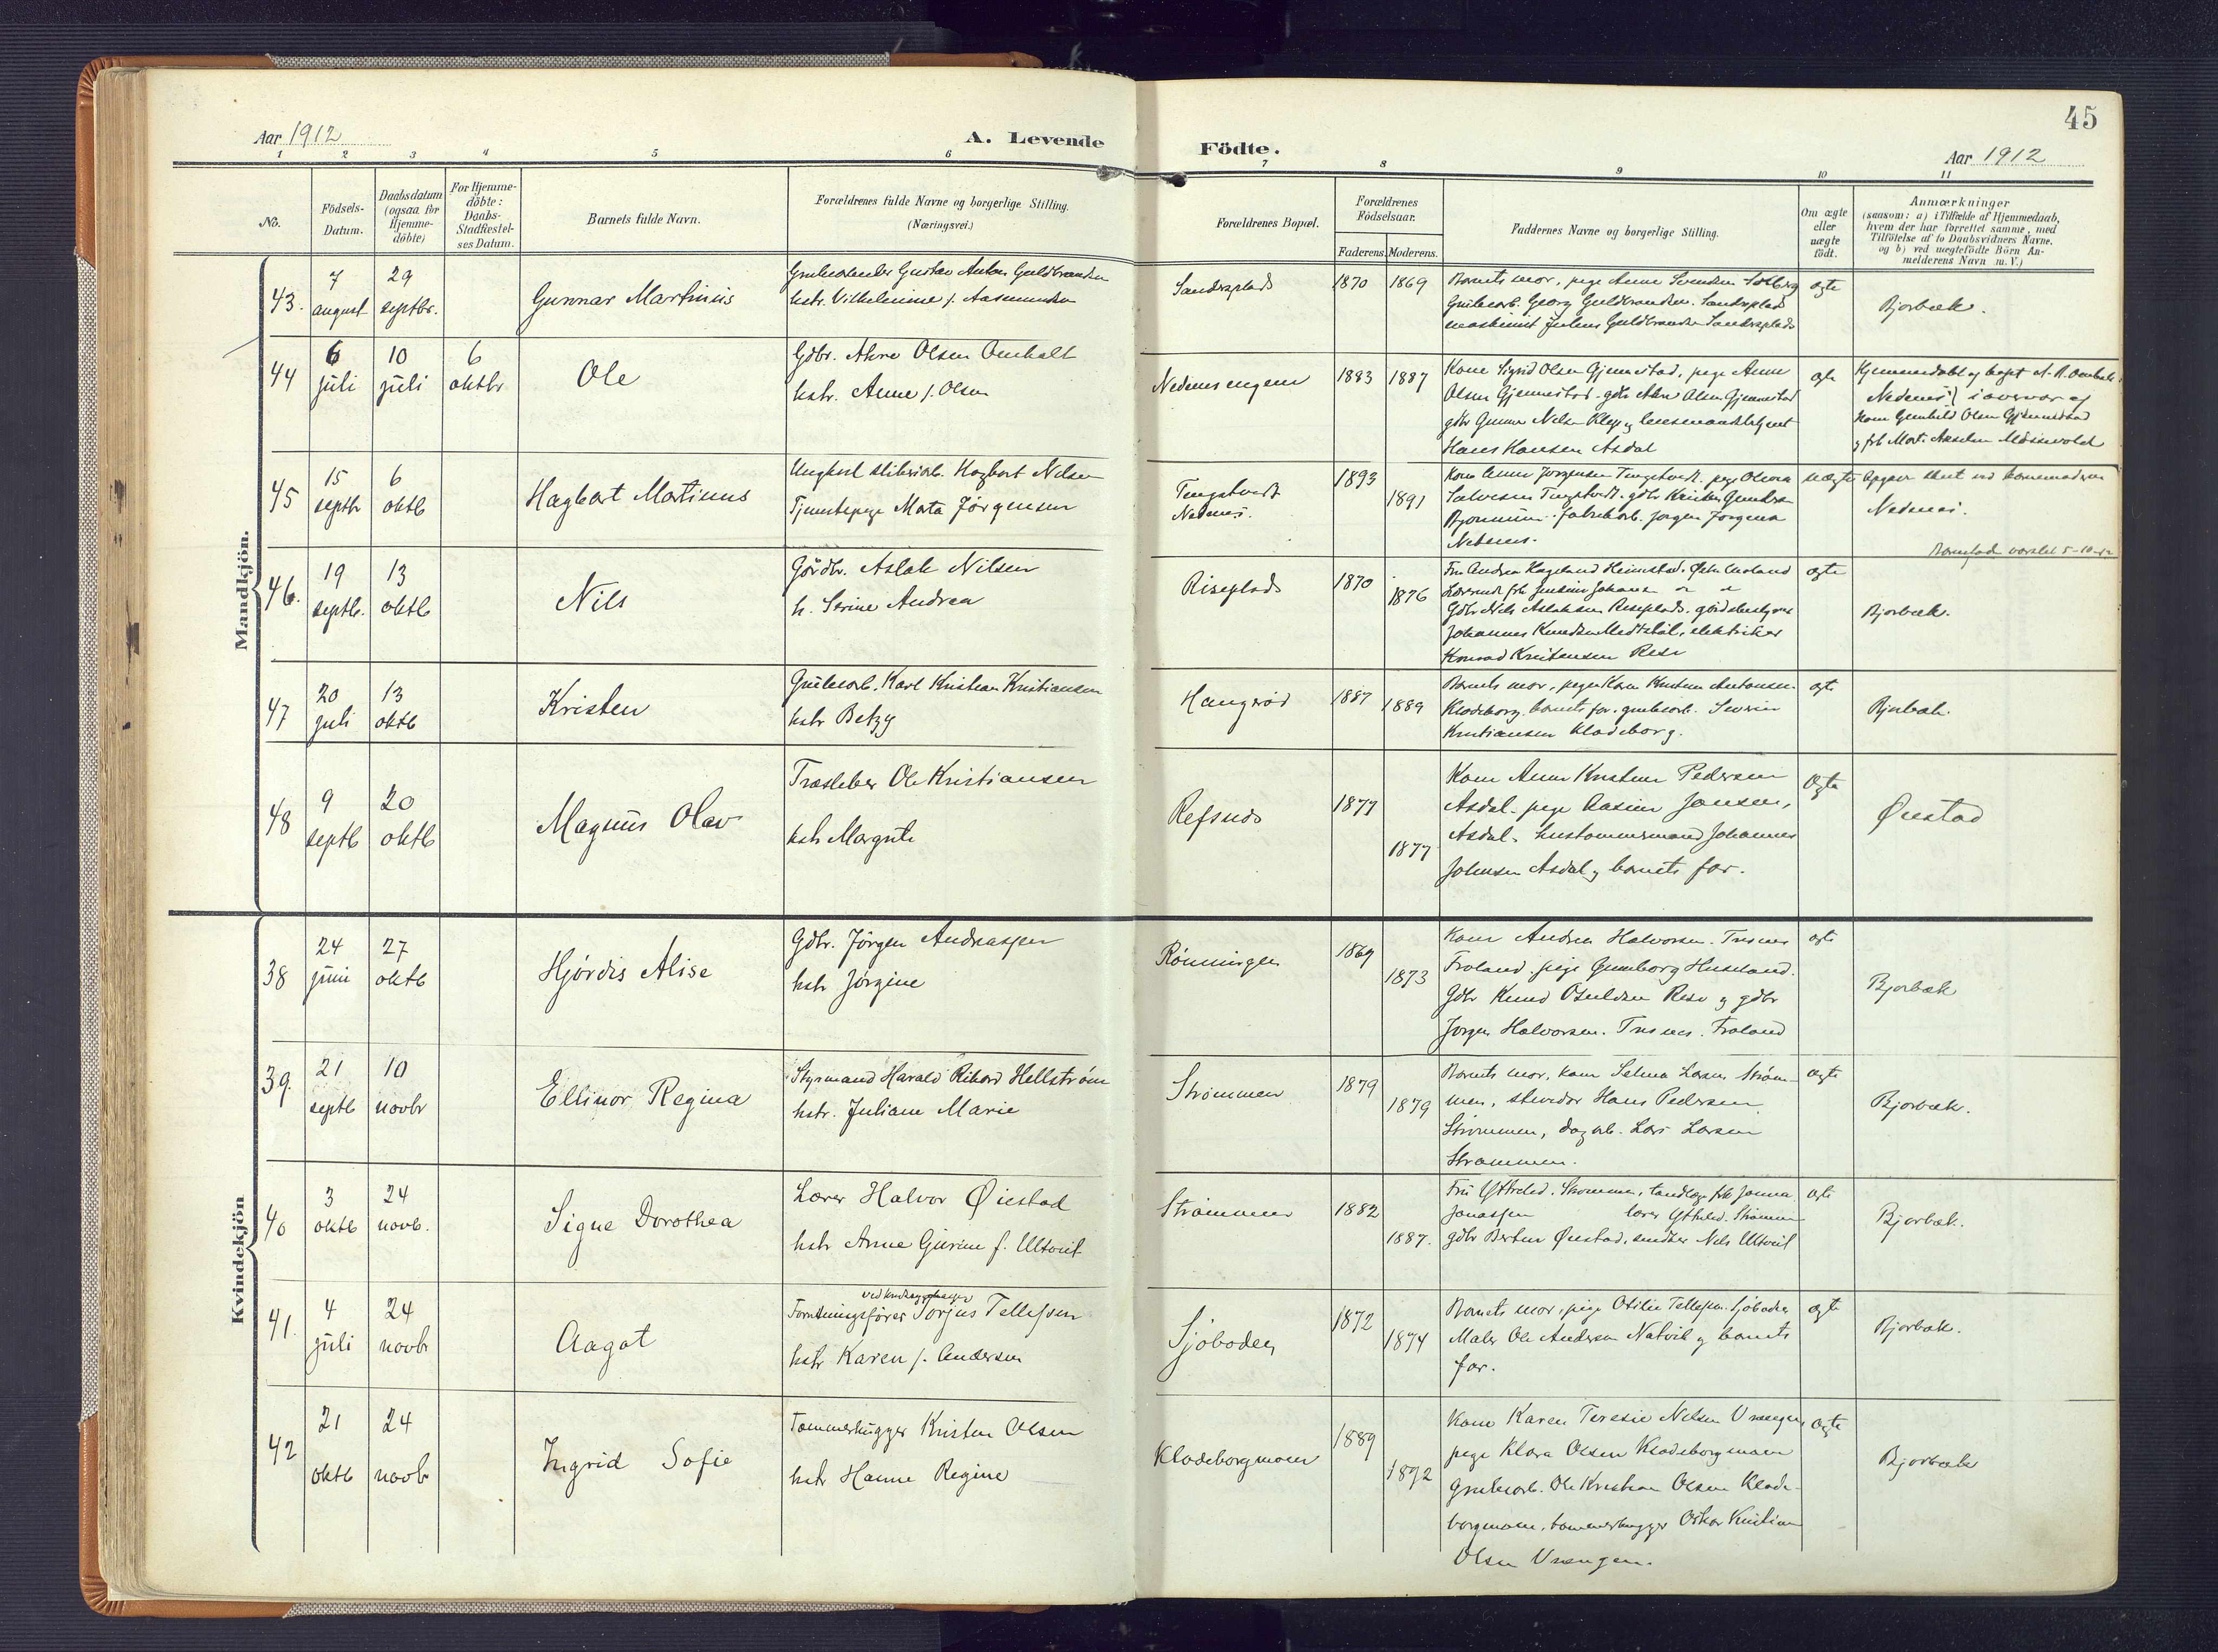 45
Aar 1912
A. Levende
Födte.
Aar 1912
1 2 3 4 5 6 7 8 9 10 11
No.
Födsels-
Datum.
Daabsdatum
(ogsaa for
Hjemme-
döbte)
For Hjemme-
döbte:
Daabs-
Stadfæstel-
ses Datum.
Barnets fulde Navn.
Forældrenes fulde Navne og borgerlige Stilling.
(Næringsvei.)
Forældrenes Bopæl.
Forældrenes
Födselsaar.
Faderens. Moderens.
Faddernes Navne og borgerlige Stilling.
Om ægte
eller
uægte
født.
Anmærkninger
(saasom: a) i Tilfælde af Hjemmedaab,
hvem der har forrettet samme, med
Tilföielse af to Daabsvidners Navne.
og b) ved uægtefødte Börn An-
melderens Navn m. V.)
Mandkjön.
43.
7
august
29
septbr.
Gunnar Martinius
Grubearbeider Gustav Anton Guldbrandsen
hstr. Vilhelmine f. Aasmundsen
Sandsplads
1870 1869
Barnets mor, pige Anne Svendsen Solberg
Grubearb. Georg Guldbrandsen. Sandsplads
maskinist Julius Guldbrandsen Sandsplads
ægte
Bjorbæk.
44
6
juli
10
juli
6
oktbr
Ole
Gdbr. Olsen Omholt
hstr. Anne f. Olsen
Nedenesengen
1883 1887
Kone Sigrid Olsen Gjennestad, pige Anne
Olsen Gjennestad. gdbr Olsen Gjennestad
gdbr Gunnar Nilsen Klep og
Hans Hansen Asdal
ægte
Hjemmedøbt af
Nedenes i overvær af
kone Gunhild Olsen Gjennestad
45
15
septbr
6
oktb
Hagbart Martinus
Ungkarl Hagbart Nilsen
Tjenestepige Marta Jørgensen
Tingstveit
Nedenes.
1893
1891
Kone Anne Jorgensen Tingstveit. pige
Salvesen Tingstveit. gdbr Kristen Gundersen
Bjornmin. fabrikarb. Jorgen Jorgensen
Nedenes.
uægte
Opgivet ved barnemoderen
Nedenes.
5-10-12
46.
19
septb.
13
oktb
Nils
Gårdbr. Aslak Nilsen
h. Serine Andrea
Riseplads
1870
1876
Fru Andrea Hageland Heimstad. Østre Moland
Gdbr Nils Aslaksen Riseplads.
Johannes Knudsen elektriker
Konrad Kristensen Rese
ægte
Bjorbæk.
47
20
juli
13
oktb
Kristen
Grubearb. Karl Kristian Kristiansen
hstr Betzy
Haugerød
1887
1889
Barnets mor, pige Karen Kristine Antonsen
Klodeborg. barnets far. grubearb. Severin
Kristiansen Klodeborg.
ægte
Bjorbæk.
48
9
septb
20
oktb
Magnus Olav
Træsleber Ole Kristiansen
hstr Margrete
Refsnes
1877
1877
Kone Anne Kristine Pedersen
Asdal. pige Aasine Jansen,
Asdal. hustømmermand Johannes
Johnsen Asdal og barnets far.
Ægte
Øiestad
Kvindekjön
38
24
juni
27
oktb
Hjördis Alise
Gdbr. Jörgen Andreassen
hstr Jörgine
Rønningen
1869
1873
Kone Andrea Halvorsen. Trenes
Froland. pige Gunborg Huseland.
Gdbr Knud Osuldsen Rese og gdbr
Jorgen Halvorsen. Trenes. Froland
ægte
Bjorbæk
39.
21
septb
10
novbr
Ellinor Regina
Styrmand Harald Rikard Hellström
hstr. Juliane Marie
Strømmen
1879
1879
Barnets mor, kone Selma Larsen Strøm-
men, stuedor Hans Pedersen
Strømmen, dagarb. Lars Larsen
Strømmen.
ægte
Bjorbæk.
40
3
oktb
24
novb.
Signe Dorothea
Lærer Halvor Øiestad
hstr Anne Gurine f. Ultveit
Strømmen
1882
1887.
Fru Ytterbød. Strømmen, tandlæge frk Janna
Jonassen lærer Strømmen
gdbr Berten Øiestad. Nils Ultveit
ægte
Bjorbæk.
41.
4
juli
24
novbr
Aagot
Forretningsfører Torjus Tellefsen
hstr Karen f. Andersen
Sjöboden
1872
1874
Barnets mor, pige Otilie Tellefsen. Sjöboden
Maler Ole Andersen Natvik og barnets
far.
ægte
Bjorbæk.
42
21
oktb
24
novbr
Ingrid Sofie
Tømmerhugger Kristen Olsen
hstr Hanne Regine
Klodeborgmoen
1889
1892
Kone Karen Teresie Nilsen Vrængen
pige Klara Olsen Klodeborgmoen
Grubearb. Ole Kristian Olsen Klode-
borgmoen, tømmerhugger Oskar Kristian
Olsen Vrængen.
ægte
Bjorbæk